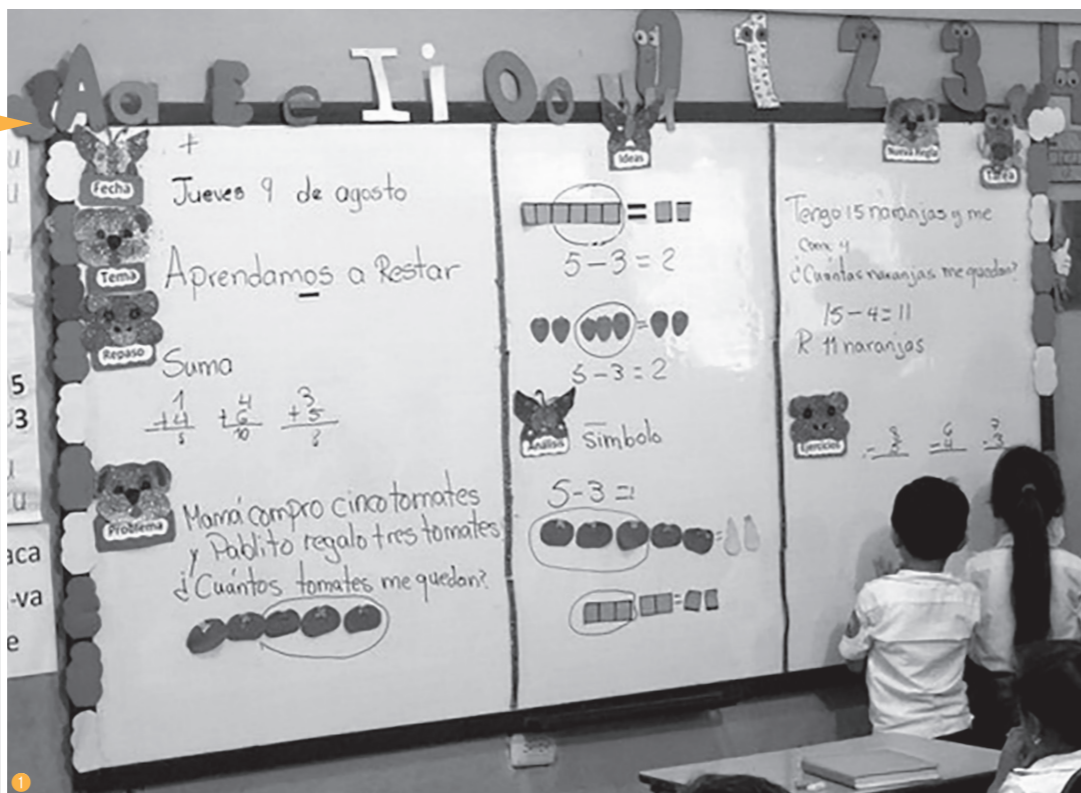 A a E e I i O o U 1 2 3
Fecha
+
Jueves 9 de agosto
Tema
Aprendamos a Restar
Repaso
Suma
1 4 3
+4 +6 +5
10 8
Problema
Mamá compro cinco tomates
y Pablito regalo tres tomates
¿Cuántos tomates me quedan?
Ideas
=
5-3=2
=
5-3=2
Análisis
símbolo
5-3=
=
=
Nueva Regla
Tarea
Tengo 15 naranjas y me
comí 4
¿Cuántas naranjas me quedan?
15-4=11
R 11 naranjas
Ejercicios
6 7
-4 -3
5
3
aca
-va
e
1